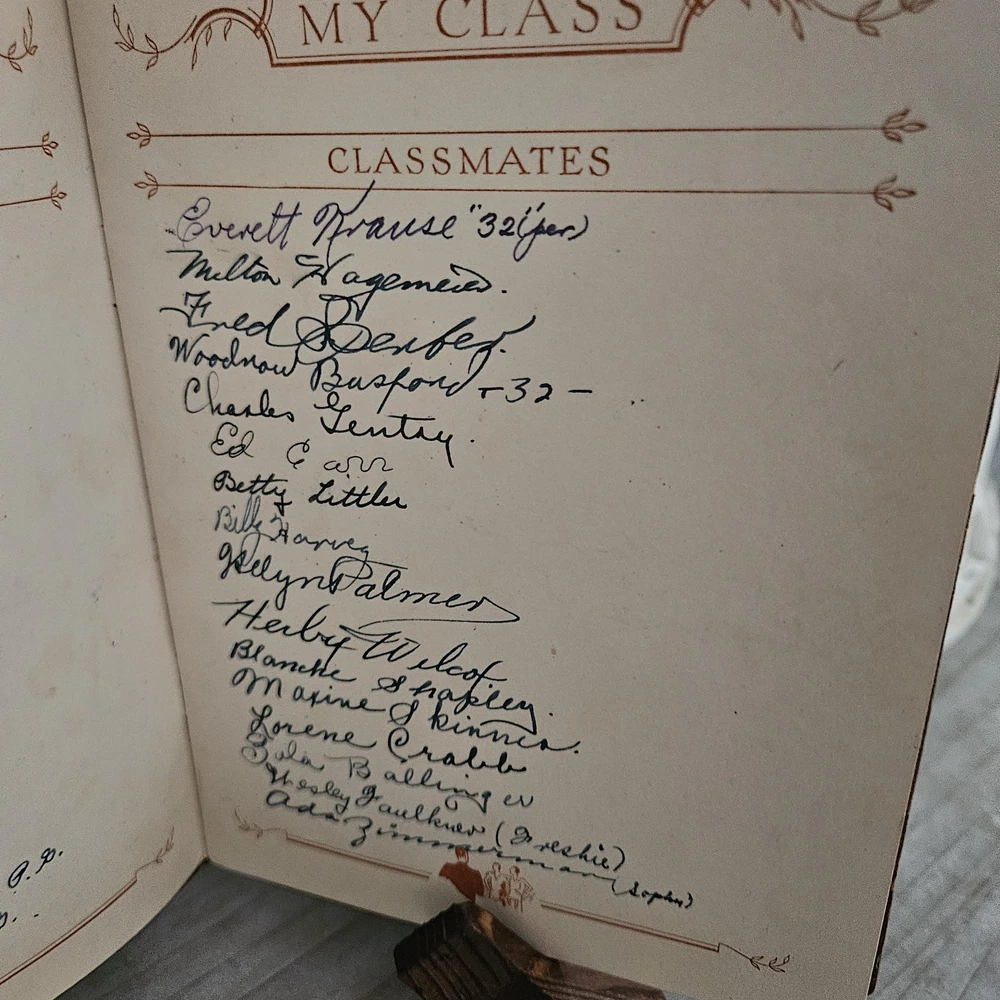 MY CLASS
CLASSMATES
Everett Krause "32"(per)
Milton Hagemeier.
Fred
Woodrow Busford -32-
Charles Gentry.
Ed Carr
Betty Littler
Billy Harvey
Palmer
Herby Wilcox
Blanche Shapley.
Maxine Skinner.
Lorene Crabb
Ballinger
Wesley Faulkner (Freshie)
Ada Zimmerman (Soph)